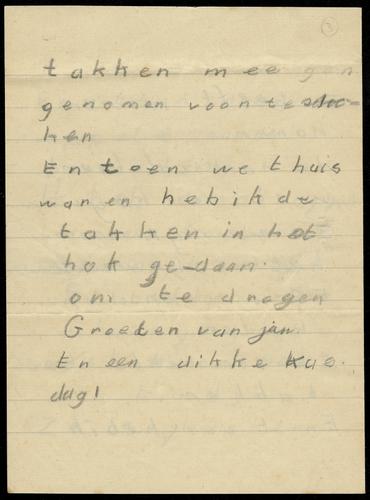 3
takken mee gen
genomen voor te stoo-
ken
En toen we thuis
waren heb ik de
takken in het
hok ge-daan.
om te drogen
Groeten van jan.
En een dikke kus.
dag!